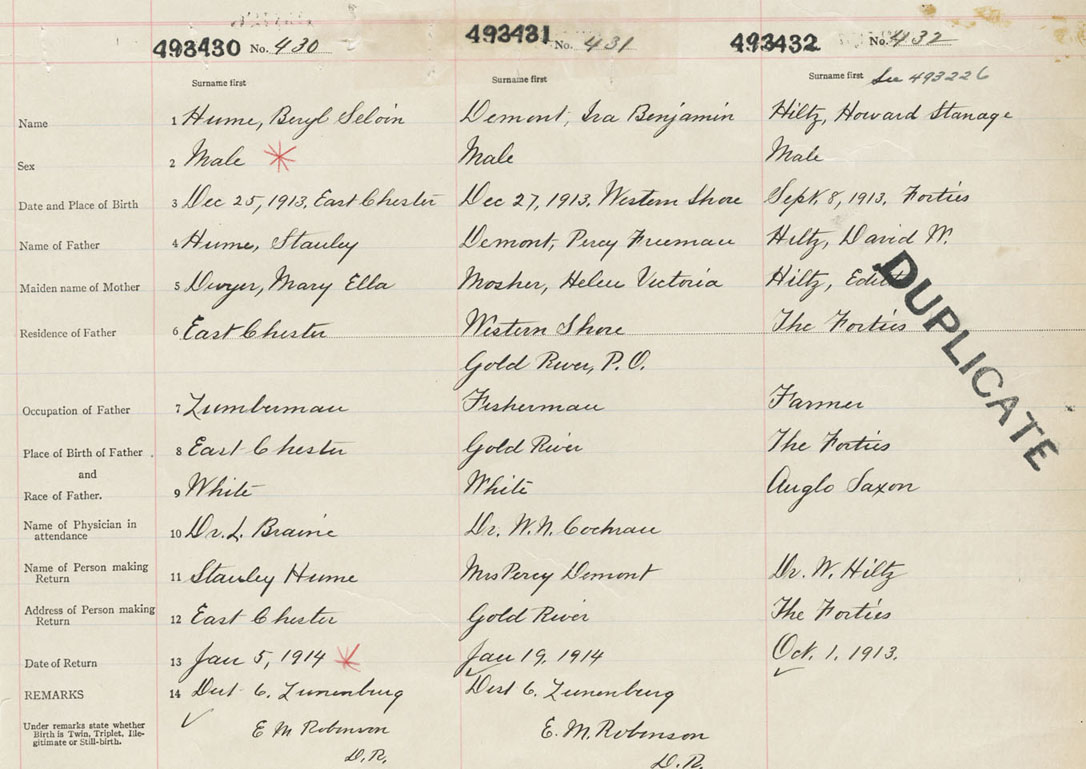 493430 No. 430 493431 No. 431 493432 No. 432
Surname first Surname first Surname first See 493226
Name 1 Hume, Beryl Seloin Demont, Ira Benjamin Hiltz, Howard Stanage
Sex 2 Male Male Male
Date and Place of Birth 3 Dec 25, 1913, East Chester Dec 27, 1913. Western Shore Sept. 8, 1913, Forties
Name of Father 4 Hume, Stanley Demont, Percy Freeman Hiltz, David W.
Maiden name of Mother 5 Dwyer, Mary Ella Mosher, Helen Victoria Hiltz,
DUPLICATE
Residence of Father 6 East Chester Western Shore The Forties
Gold River, P.O.
Occupation of Father 7 Lumberman Fisherman Farmer
Place of Birth of Father 8 East Chester Gold River The Forties
and
Race of Father. 9 White White Anglo Saxon
Name of Physician in
attendance 10 Dr. L. Braine Dr. W. N. Cochran
Name of Person making
Return 11 Stanley Hume Mrs Percy Demont Dr. W. Hiltz
Address of Person making
Return 12 East Chester Gold River The Forties
Date of Return 13 Jan 5, 1914 Jan 19, 1914 Oct. 1, 1913.
REMARKS 14 Dist C. Lunenburg Dist C. Lunenburg
Under remarks state whether
Birth is Twin, Triplet, Ille-
gitimate or Still-birth.
E M Robinson E. M. Robinson
D.R. D.R.